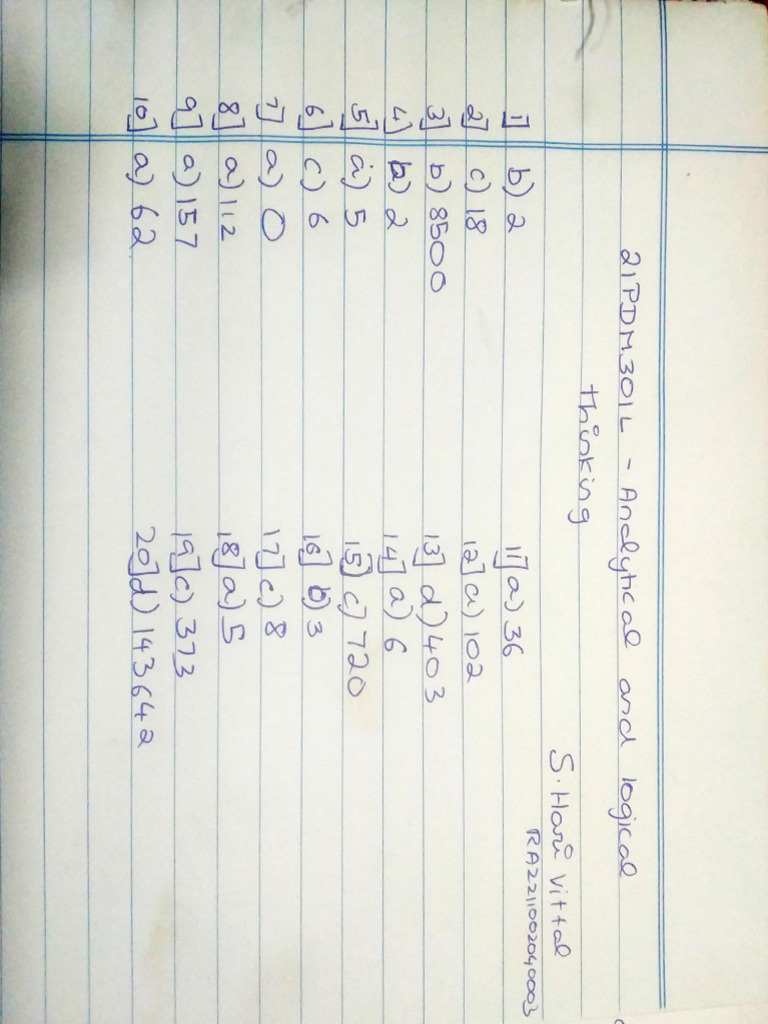 21PDM301L - Analytical and logical
thinking
S. Hari Vittal
RA2211002040003
1] b) 2
2] c) 18
3] b) 8500
4] b) 2
5] a) 5
6] c) 6
7] a) 0
8] a) 112
9] a) 157
10] a) 62
11] a) 36
12] a) 102
13] d) 403
14] a) 6
15] c) 720
16] b) 3
17] c) 8
18] a) 5
19] c) 373
20] d) 143642